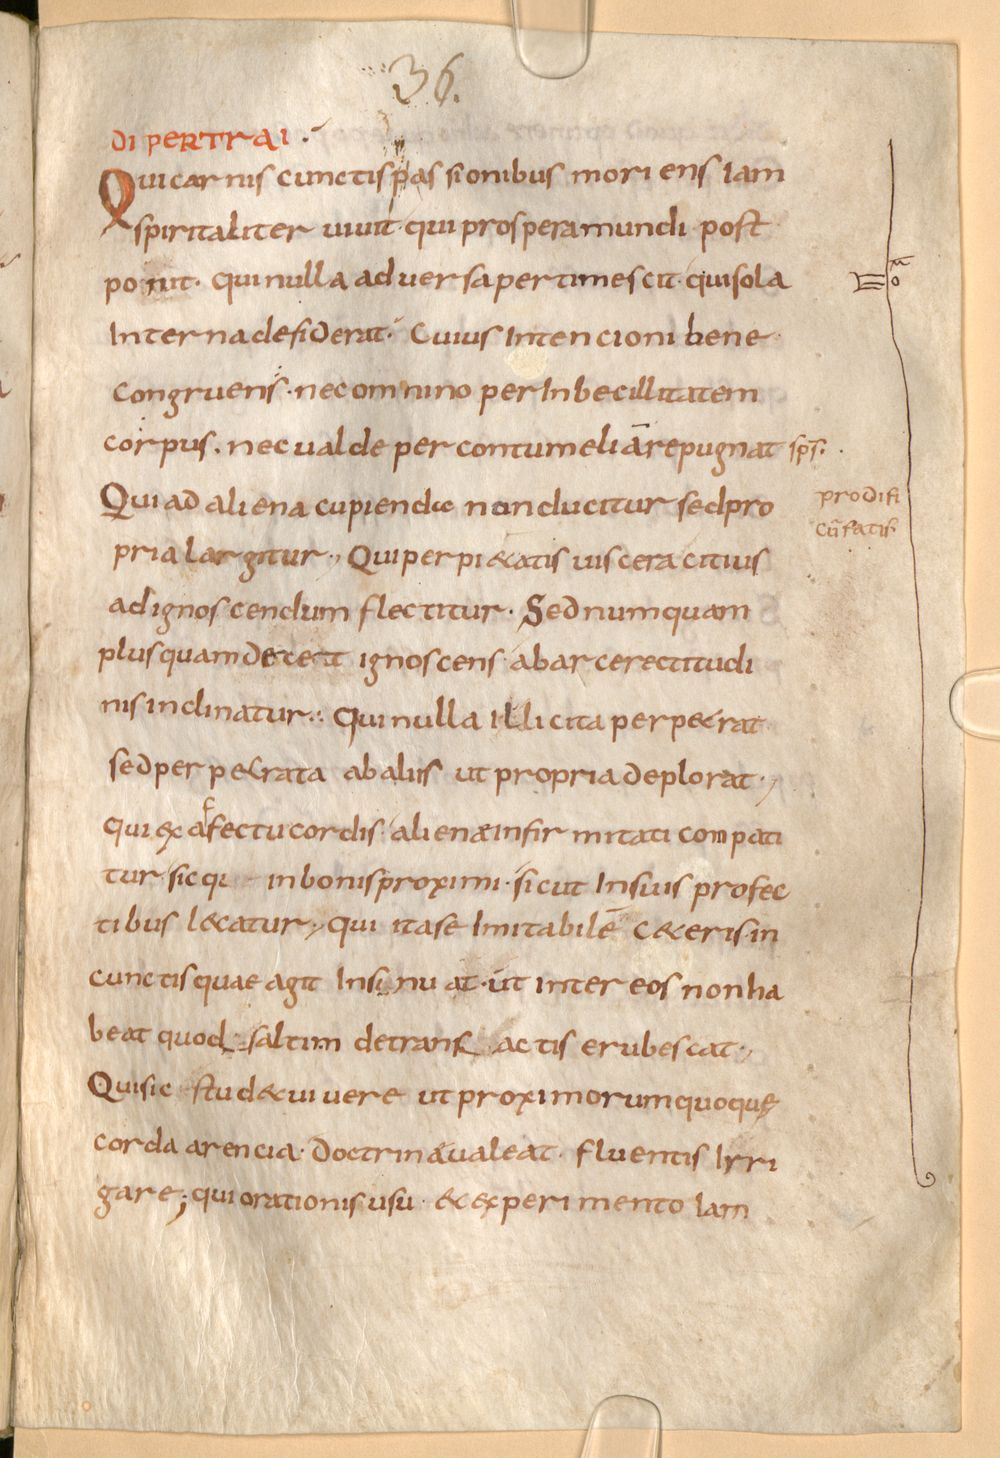 36.
DI PERTRAI
Qui carnis cunctis passionibus moriens Iam
spiritaliter uiuit· qui prospera mundi post
ponit· qui nulla aduersa pertimescit· qui sola
Interna desiderat· Cuius Intencioni bene
congruens· nec omnino per Inbecillitatem
corpus· nec ualde per contumeliā repugnat sps̄·
Qui ad aliena cupienda non ducitur sed pro
prodifi
pria largitur· Qui per pi&atis uiscera citius
cū fatis·
ad ignoscendum flectitur· Sed numquam
plus quam decet ignoscens ab arce rectitudi
nis inclinatur· Qui nulla Illicita perp&rat
sed perp&rata ab aliis ut propria deplorat·
qui ex affectu cordis alienæ infirmitati compati
tur sic qi in bonis proximi· sicut In suis profec
tibus l&atur· qui ita se Imitabilē c&eris in
cunctis quae agit Insinuat· ut inter eos non ha
beat quod saltim de transactis erubescat·
Qui sic stud& uiuere ut proximorum quoque
corda arencia· Doctrinæ ualeat fluentis Irri
gare; qui orationis usu· & experimento Iam